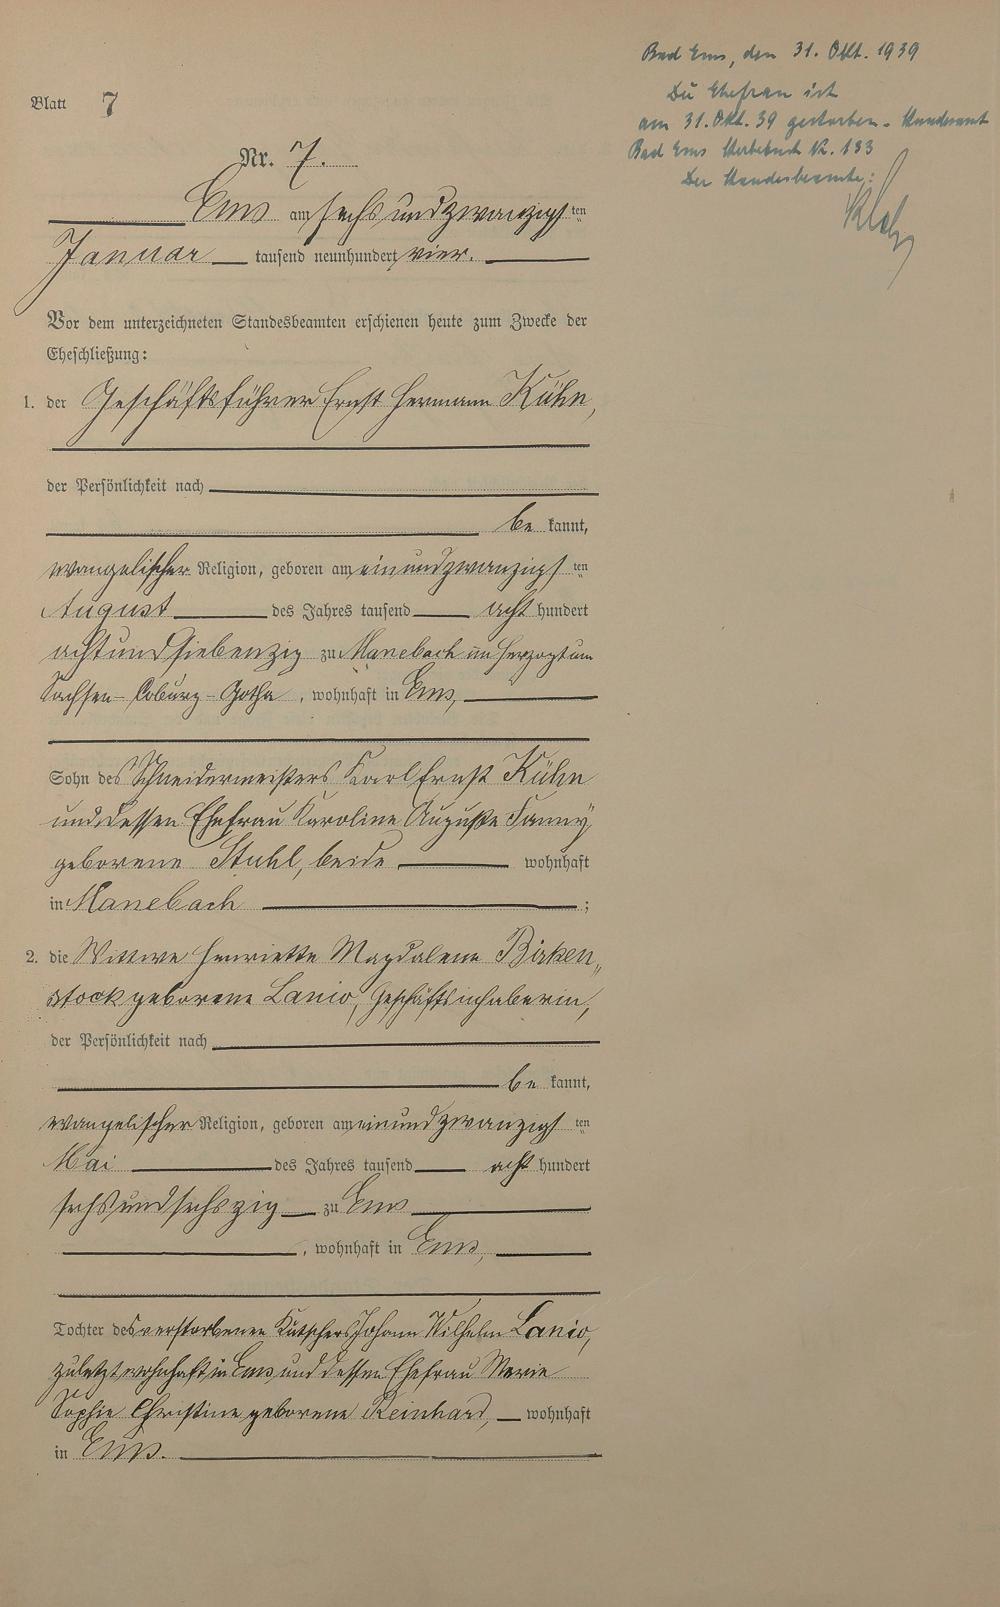 Blatt 7
Nr. 7.
Ems am sechsundzwanzigsten
Januar tausend neunhundert vier.
Vor dem unterzeichneten Standesbeamten erschienen heute zum Zwecke der
Eheschließung:
1. der Geschäftsführer Ernst Hermann Kühn,
der Persönlichkeit nach
be kannt,
evangelischer Religion, geboren am einundzwanzigsten
August des Jahres tausend acht hundert
achtundsiebenzig zu Manebach im Herzogtum
Sachsen-Coburg-Gotha, wohnhaft in Ems,
Sohn des Schneidermeisters Karl Ernst Kühn
und dessen Ehefrau Karoline Auguste Fanny
geborene Stuhl, beide wohnhaft
in Manebach ;
2. die Wittwe Henriette Magdalena Birken„
stock geborene Lanio, Geschäftsinhaberin,
der Persönlichkeit nach
be kannt,
evangelischer Religion, geboren am einundzwanzigsten
Mai des Jahres tausend acht hundert
sechsundsechszig zu Ems
, wohnhaft in Ems,
Tochter des verstorbenen Kutschers Johann Wilhelm Lanio,
zuletzt wohnhaft in Ems und dessen Ehefrau Marie
Sophie Christine geborene Reinhard, wohnhaft
in Ems.
Bad Ems, den 31. Okt. 1939
Die Ehefrau ist
am 31. Okt. 39 gestorben - Standesamt
Bad Ems Sterbebuch Nr. 133
Der Standesbeamte: